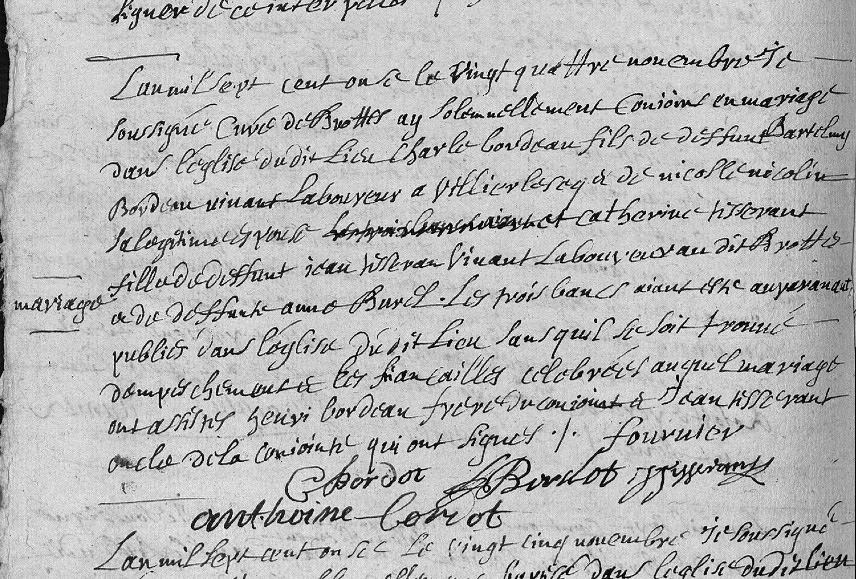 signer de ce interpellés
Lan mil sept cent onse le vingt quattre novembre Je
soussigné Curé de Brottes ay solemnellement Conjoins en mariage
dans l'église dudit Lieu Charle bordeau fils de deffunt Bartelmy
Bordeau vivant Laboureur a villierleseq & de nicolle nicolin
sa legitime espouse et catherine tisserant
fille de deffunt jean tisseran vivant Laboureur au dit Brottes
mariage
& de deffunte anne Burel. Les trois bancs aiant esté auparavant
publiés dans l'église dudit Lieu sans quil se soit trouvé
dempeschement & les fiancailles celebrées auquel mariage
ont assistés henri bordeau frere du conjoint & Jean tisserant
oncle de la conjointe qui ont signés ./. fournier
C bordot H Bordot J tisserant
anthoine Cordot
Lan mil sept cent onse Le vingt cinq novembre Je soussigné
dans leglise dudit lieu